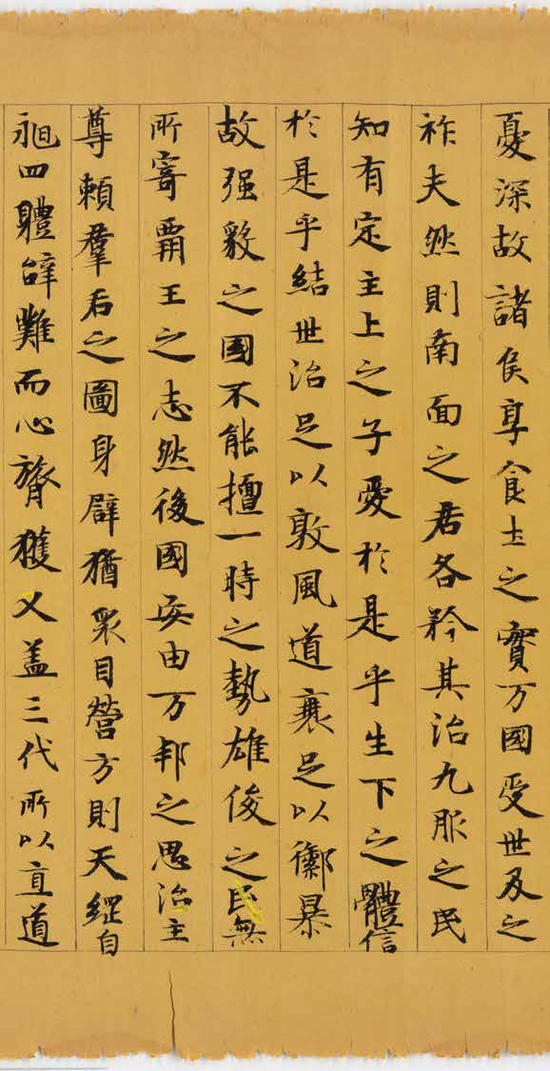 憂深故諸侯享食土之實万國受世及之
祚夫然則南面之君各矜其治九服之民
知有定主上之子愛於是乎生下之體信
於是乎結世治足以敦風道衰足以御暴
故强毅之國不能擅一時之勢雄俊之民無
所寄霸王之志然後國安由万邦之思治主
尊賴羣后之圖身辟猶衆目營方則天網自
昶四體辭難而心膂獲乂盖三代所以直道